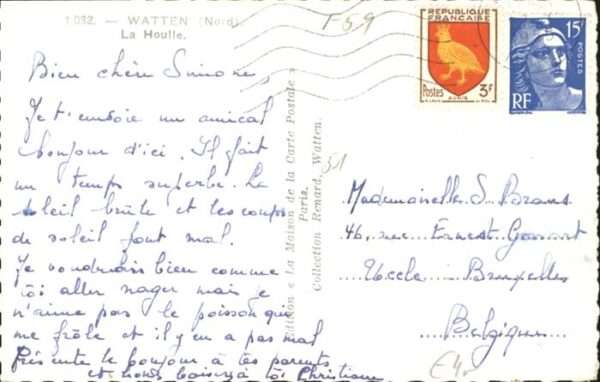 1.032. — WATTEN (Nord).
La Houlle.
T 59
Bien chère Simone,
Je t'envoie un amical
bonjour d'ici. Il fait
un temps superbe. Le
soleil brûle et les coups
de soleil font mal.
Je voudrais bien comme
toi aller nager mais je
n'aime pas le poisson qui
me frôle et il y en a pas mal
Présente le bonjour à tes parents
et bons baisers à toi Christiane
Edition « La Maison de la Carte Postale »
Paris.
Collection Renard, Watten.
51
REPUBLIQUE
FRANÇAISE
Postes 3F
AUNIS
15F
POSTES
RF
Mademoiselle S. Braus
46, rue Ernest
Uccle Bruxelles
Belgique